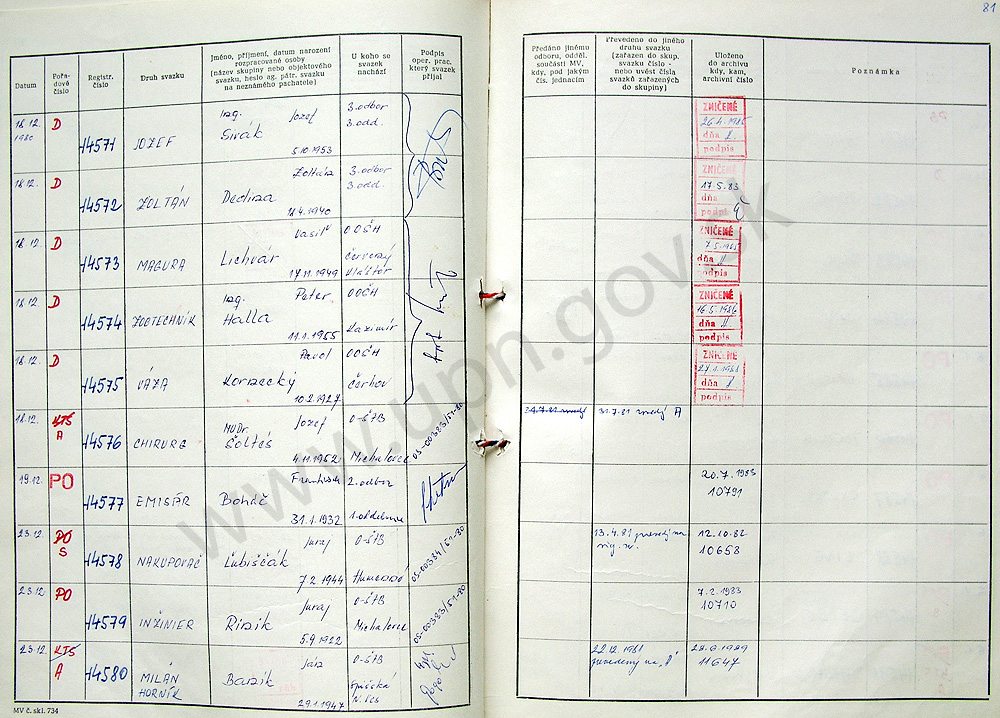 81
Datum
Pořa-
dové
číslo
Registr.
číslo
Druh svazku
Jméno, příjmení, datum narození
rozpracované osoby
(název skupiny nebo objektového
svazku, heslo ag. pátr. svazku
na neznámého pachatele)
U koho se
svazek
nachází
Podpis
oper. prac.
který svazek
přijal
Předáno jinému
odboru, odděl.
součásti MV,
kdy, pod jakým
čís. jednacím
Převedeno do jiného
druhu svazku
(zařazen do skup.
svazku číslo -
nebo uvést čísla
svazků zařazených
do skupiny)
Uloženo
do archivu
kdy, kam,
archivní číslo
Poznámka
18.12.
1980
D
14571
JOZEF
Ing. Jozef
Sirák
5.10.1953
3.odbor
3.odd.
ZNIČENÉ
26.4.1985
dňa
podpis
18.12.
D
14572
ZOLTÁN
Zoltán
Dedina
18.4.1940
3.odbor
3.odd.
ZNIČENÉ
17.5.83
dňa
podpis
18.12.
D
14573
MAGURA
Vasiľ
Lichvár
17.11.1949
OOŠH
Červený
Kláštor
ZNIČENÉ
7.5.1985
dňa
podpis
18.12.
D
14574
ZOOTECHNIK
Ing. Peter
Halla
11.1.1955
OOČH
Kazimír
ZNIČENÉ
16.5.1986
dňa
podpis
18.12.
D
14575
VÁŽA
Pavol
Kornecký
10.2.1927
OOČH
Čerhov
ZNIČENÉ
27.1.1981
dňa
podpis
18.12.
KTS
A
14576
CHIRURG
MUDr. Jozef
Šoltés
4.11.1952
O-ŠTB
Michalovce
OS-00383/51-80
31.7.81
A
19.12.
PO
14577
EMISÁR
František
Boháč
31.1.1932
2.odbor
1.oddelenie
20.7.1983
10791
23.12.
PO
S
14578
NAKUPOVAČ
Juraj
Ľubiščák
7.2.1944
O-ŠTB
Humenné
OS-00384/51-80
13.4.81
12.10.82
10658
23.12.
PO
14579
INŽINIER
Juraj
Rizik
5.9.1922
O-ŠTB
Michalovce
OS-00383/51-80
7.2.1983
10710
23.12.
KTS
A
14580
MILAN
HORNÍK
Ján
Barik
29.1.1947
O-ŠTB
Spišská
N. Ves
22.12.1981
11647
MV č. skl. 734
www.upn.gov.sk